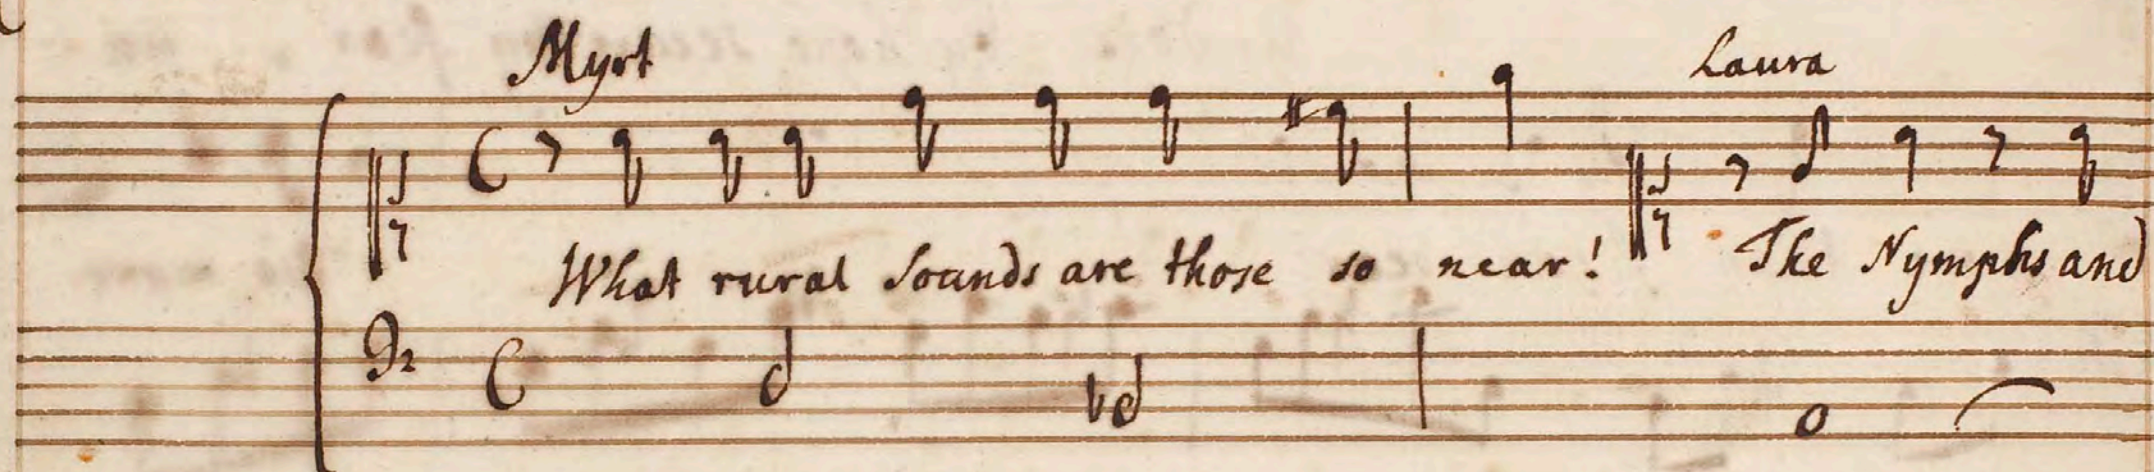 Myrt Laura
What rural sounds are those so near! The Nymphs and